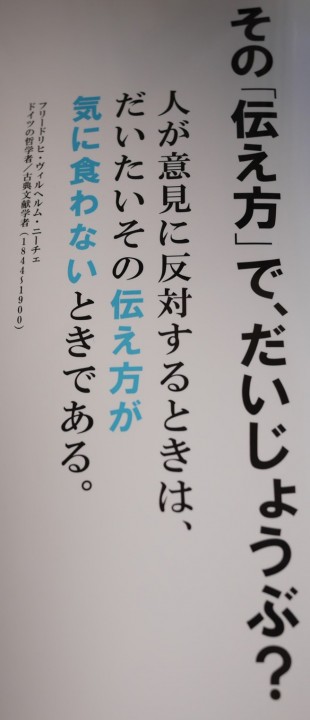 その「伝え方」で、だいじょうぶ？
人が意見に反対するときは、
だいたいその伝え方が
気に食わないときである。
フリードリヒ・ヴィルヘルム・ニーチェ
ドイツの哲学者／古典文献学者（1844〜1900）